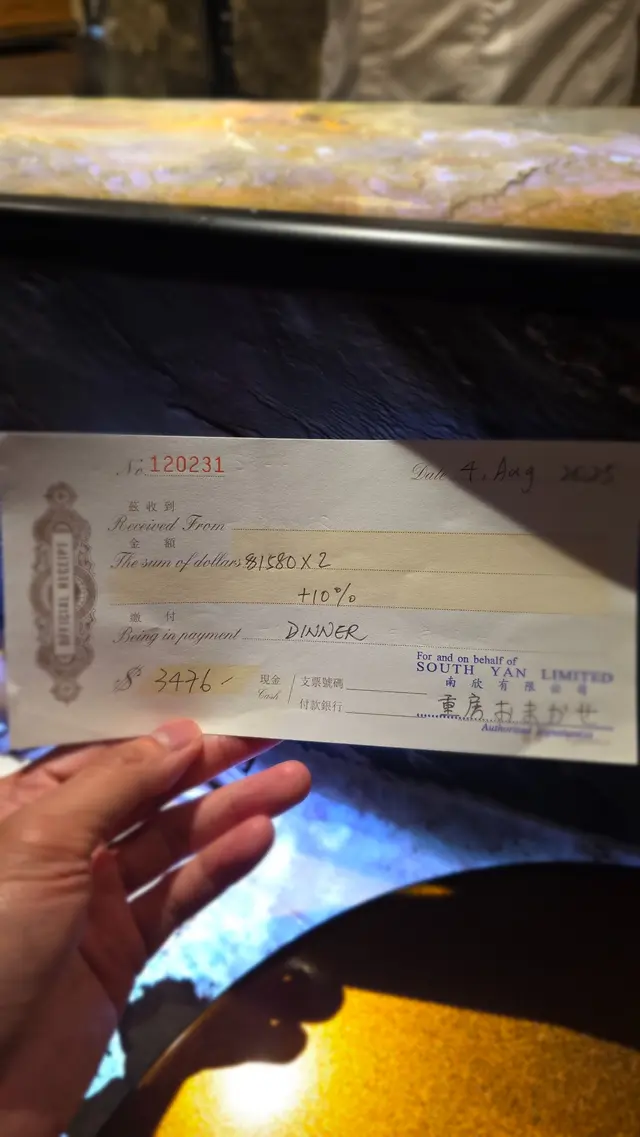 No. 120231
Date 4, Aug 2025
OFFICIAL RECEIPT
茲收到
Received From
金額
The sum of dollars $1580 X 2
+10%
繳付
Being in payment DINNER
$ 3476 -
現金
Cash
支票號碼
付款銀行
For and on behalf of
SOUTH YAN LIMITED
南欣有限公司
重房おまかせ
Authorized Signature(s)